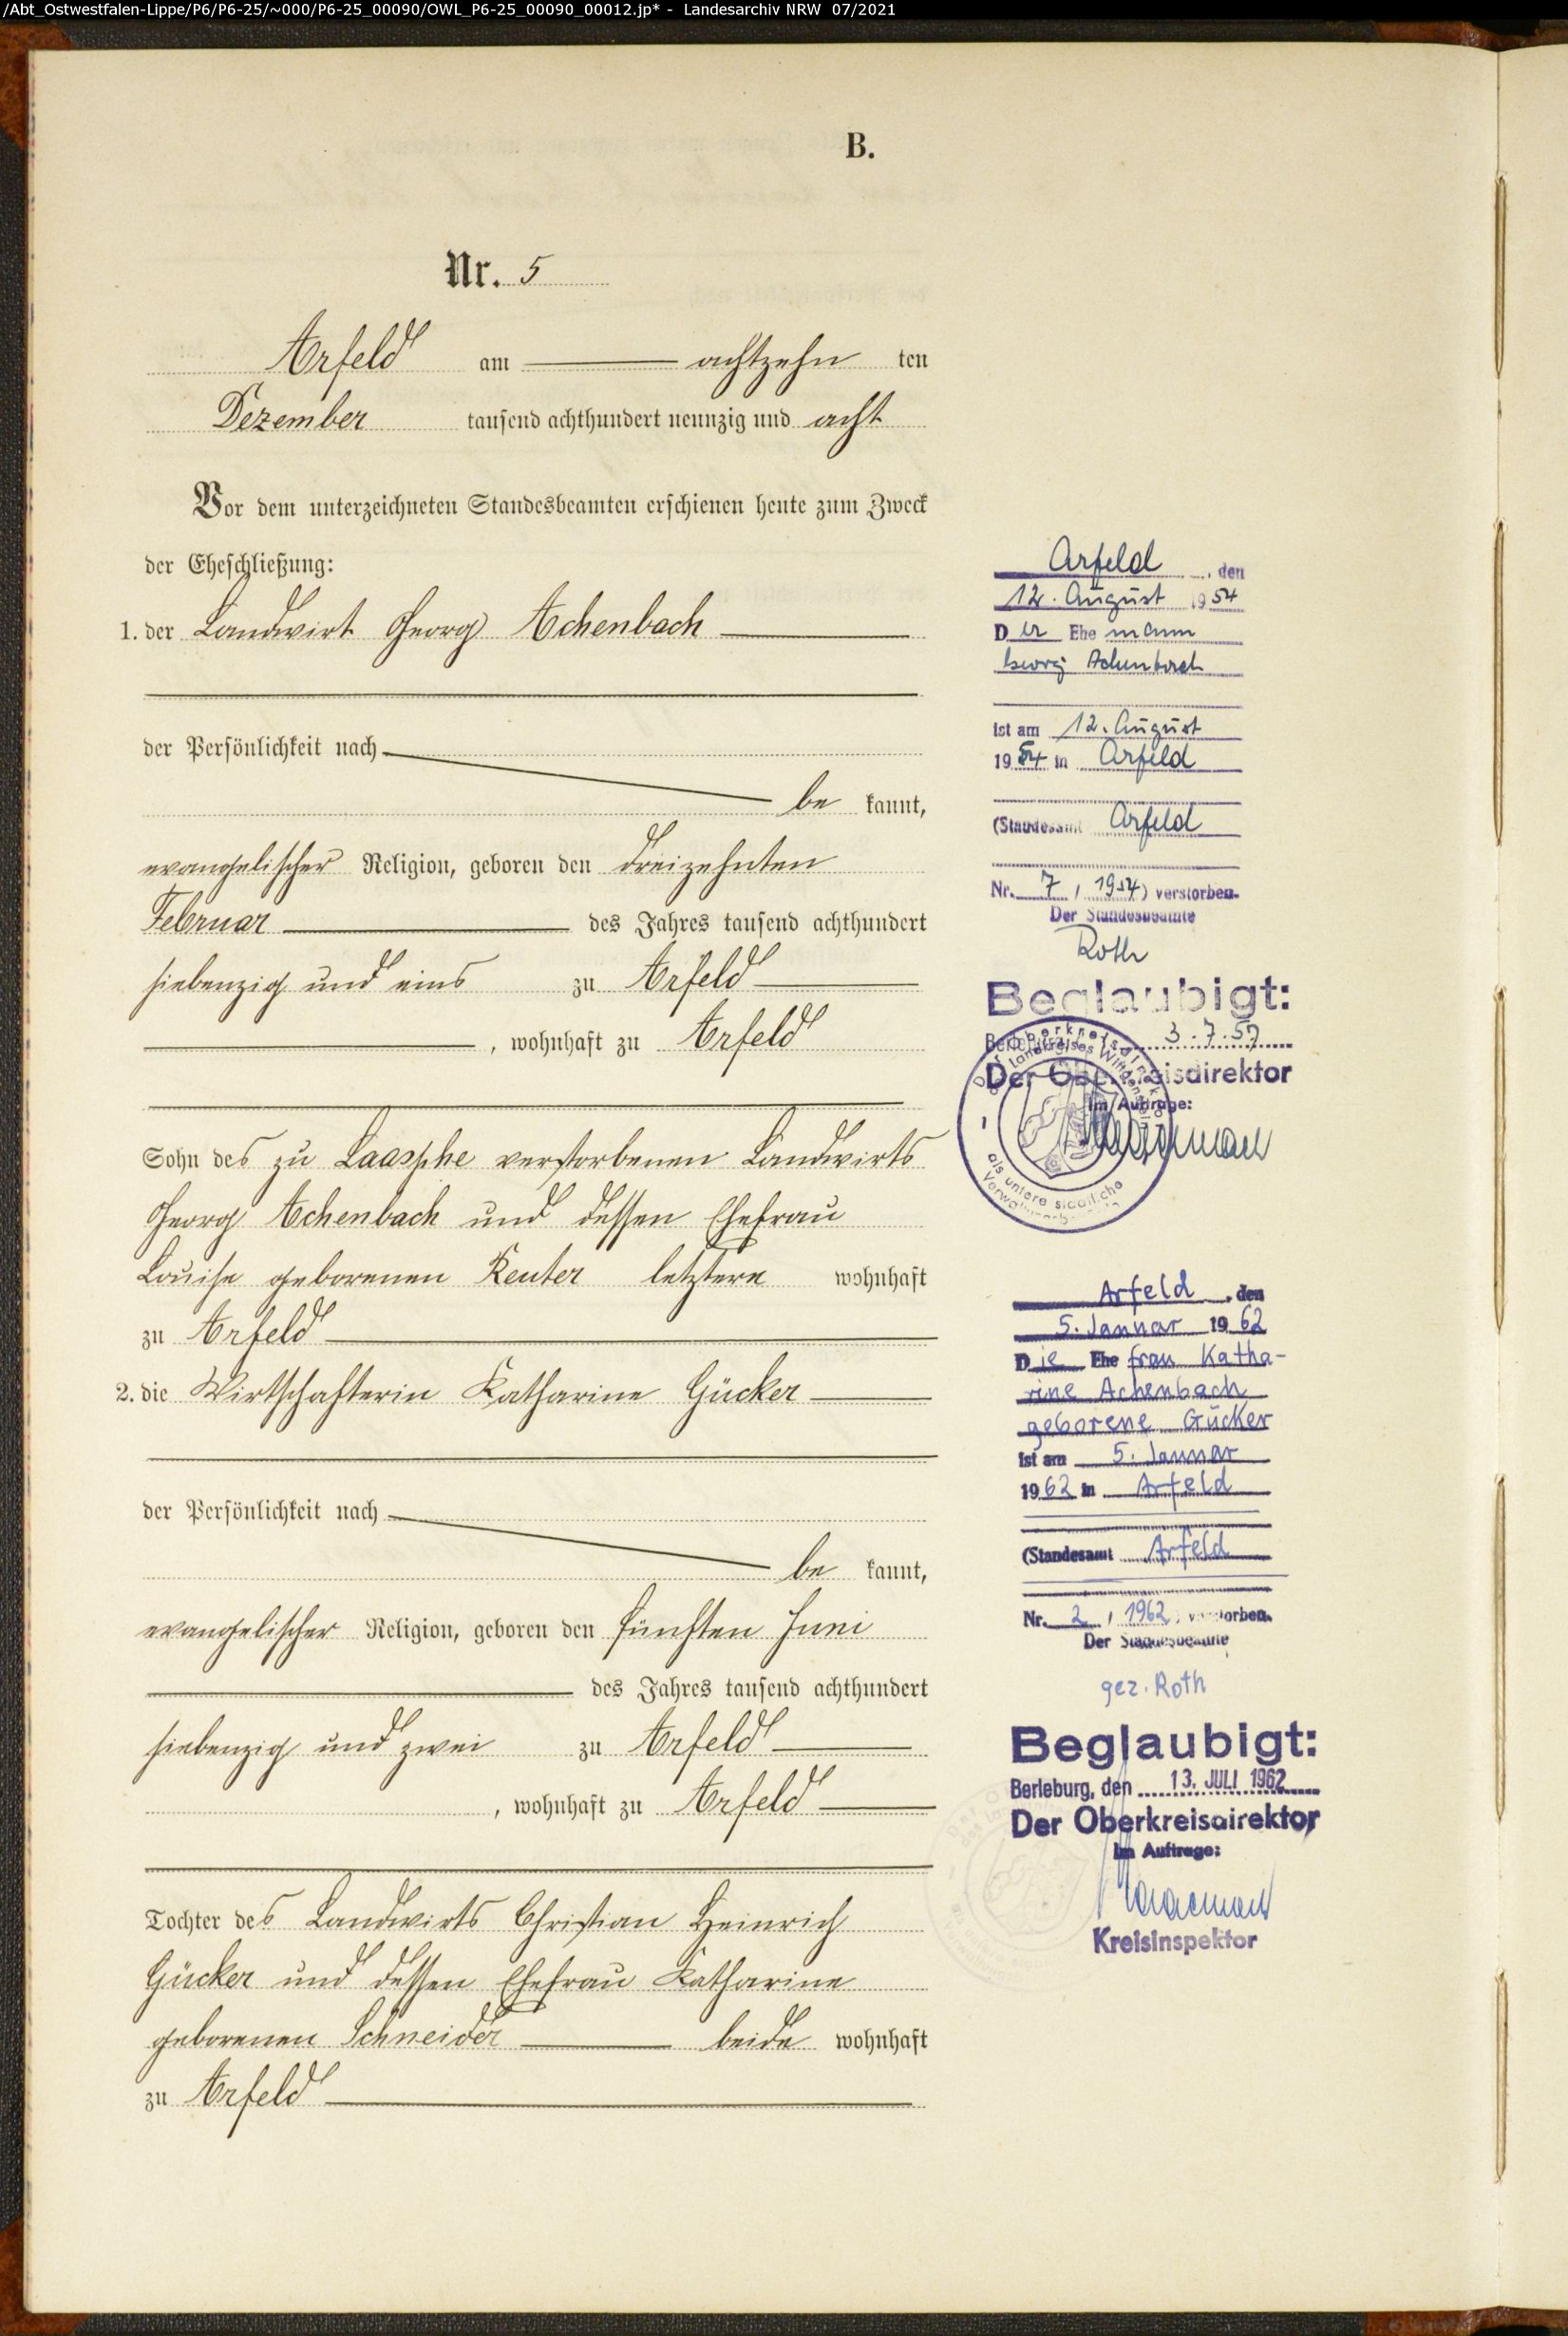 /Abt_Ostwestfalen-Lippe/P6/P6-25/~000/P6-25_00090/OWL_P6-25_00090_00012.jp* - Landesarchiv NRW 07/2021
B.
Nr. 5
Arfeld am achtzehn ten
Dezember tausend achthundert neunzig und acht
Vor dem unterzeichneten Standesbeamten erschienen heute zum Zweck
der Eheschließung:
1. der Landwirt Georg Achenbach
der Persönlichkeit nach
be kannt,
evangelischer Religion, geboren den dreizehnten
Februar des Jahres tausend achthundert
siebenzig und eins zu Arfeld
, wohnhaft zu Arfeld
Sohn des zu Laasphe verstorbenen Landwirts
Georg Achenbach und dessen Ehefrau
Louise geborenen Reuter letztere wohnhaft
zu Arfeld
2. die Wirtschafterin Katharine Gücker
der Persönlichkeit nach
be kannt,
evangelischer Religion, geboren den fünften Juni
des Jahres tausend achthundert
siebenzig und zwei zu Arfeld
, wohnhaft zu Arfeld
Tochter des Landwirts Christian Heinrich
Gücker und dessen Ehefrau Katharine
geborenen Schneider beide wohnhaft
zu Arfeld
Arfeld, den
12. August 1954
Der Ehemann
Georg Achenbach
ist am 12. August
1954 in Arfeld
(Standesamt Arfeld
Nr. 7, 1954) verstorben.
Der Standesbeamte
Roth
Beglaubigt:
3.7.57
Der Oberkreisdirektor
Im Auftrage:
als untere staatliche
Arfeld, den
5. Januar 1962
Die Ehefrau Katha-
rine Achenbach
geborene Gücker
ist am 5. Januar
1962 in Arfeld
(Standesamt Arfeld
Nr. 2, 1962) verstorben.
Der Standesbeamte
gez. Roth
Beglaubigt:
Berleburg, den 13. JULI 1962
Der Oberkreisdirektor
Im Auftrage:
Kreisinspektor